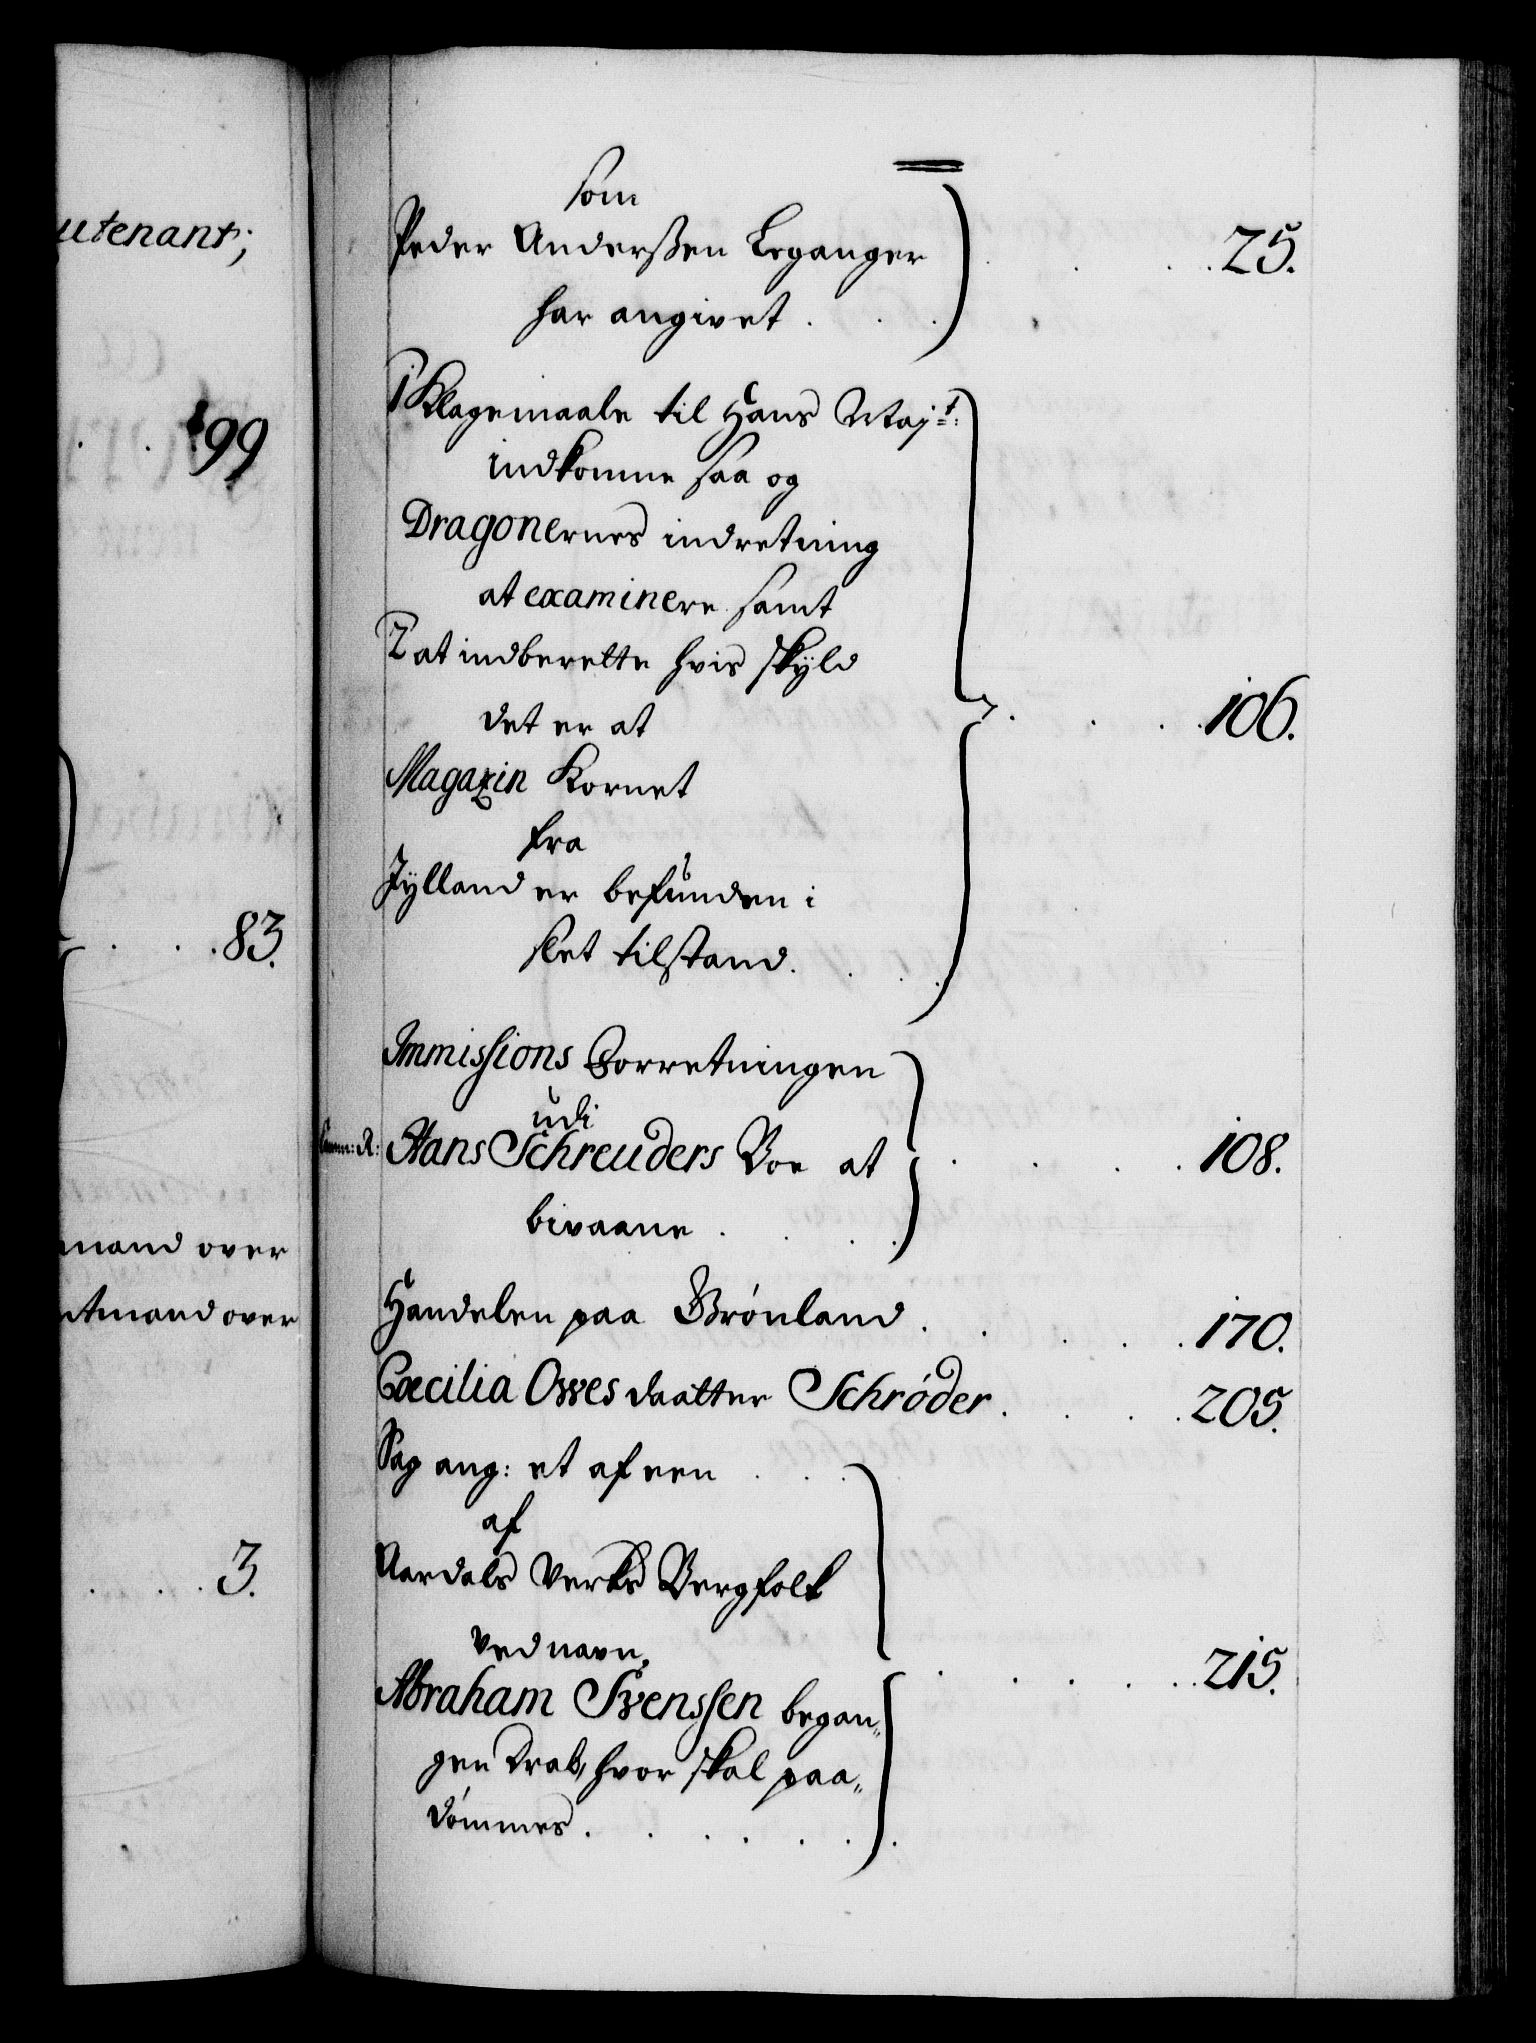 utenant;
99
83.
mand over
ntmand over
3.
som
Peder Anderßen Leganger
har angivet . . . 25.
1 Klagemaale til Hans Mayt:
indkomne saa og
Dragonernes indretning
at examinere samt
2 at indberette hvis skyld
det er at
Magazin Kornet . . . 106.
fra
Jylland er befunden i
slet tilstand.
Immissions Forretningen
udi
Comm: R: Hans Schreuders Boe at . . . 108.
bivaane .
Handelen paa Grønland . . . 170.
Cæcilia Owes daatter Schrøder . . . 205.
Sag ang: et af een
af
Aardals Verks Bergfolk
ved navn,
Abraham Svenssen began„ . . . 215.
gen Drab, hvor skal paa„
dømmes .